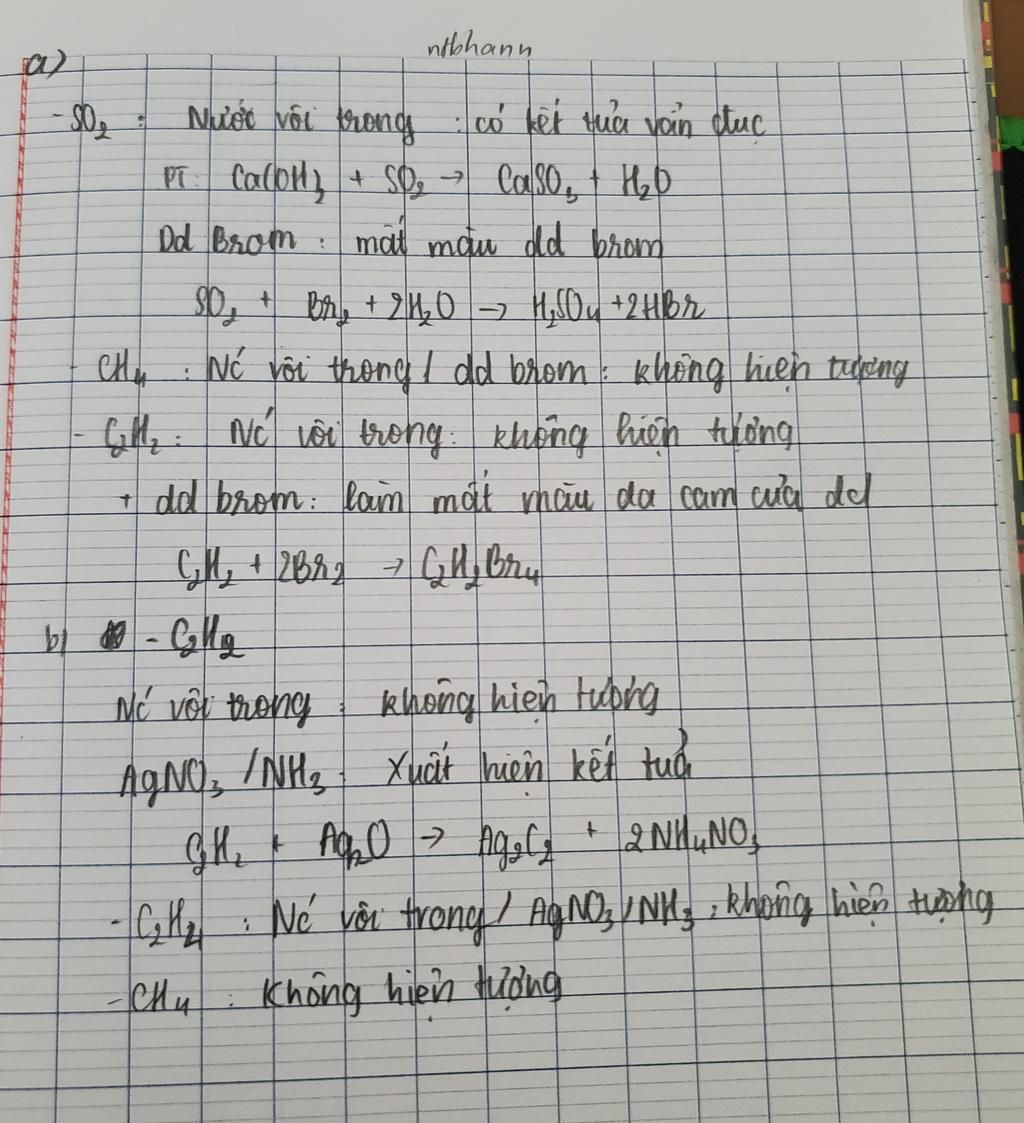 ntbhann
a)
- SO₂ : Nước vôi trong : có kết tủa vẩn đục
PT: Ca(OH)₂ + SO₂ → CaSO₃ + H₂O
Dd Brom : mất màu dd brom
SO₂ + Br₂ + 2H₂O → H₂SO₄ + 2HBr
- CH₄ : Nć vôi trong / dd brom : không hiện tượng
- C₂H₂ : Nć vôi trong : không hiện tượng
+ dd brom : làm mất màu da cam của dd
C₂H₂ + 2Br₂ → C₂H₂Br₄
b) - C₂H₂
Nć vôi trong : không hiện tượng
AgNO₃ /NH₃ : Xuất hiện kết tuả
C₂H₂ + Ag₂O → Ag₂C₂ + 2NH₄NO₃
- C₂H₄ : Nć vôi trong / AgNO₃ /NH₃ : không hiện tượng
- CH₄ : Không hiện tượng